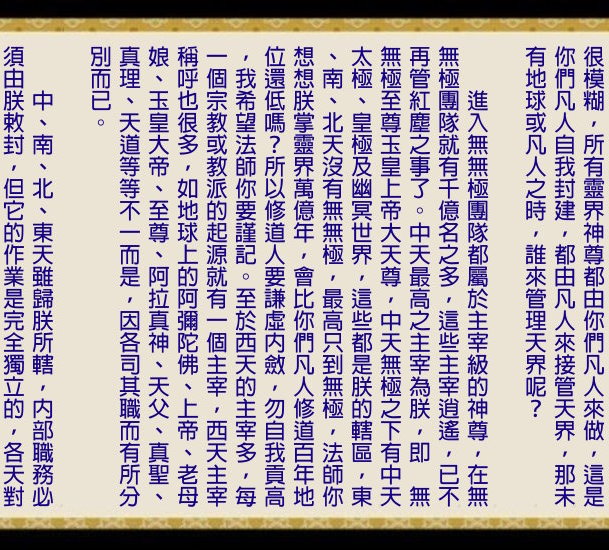 很模糊，所有靈界神尊都由你們凡人來做，這是
你們凡人自我封建，都由凡人來接管天界，那未
有地球或凡人之時，誰來管理天界呢？
進入無無極團隊都屬於主宰級的神尊，在無
無極團隊就有千億名之多，這些主宰逍遙，已不
再管紅塵之事了。中天最高之主宰為朕，即　無
無極至尊玉皇上帝大天尊，中天無極之下有中天
太極、皇極及幽冥世界，這些都是朕的轄區，東
、南、北天沒有無無極，最高只到無極，法師你
想想朕掌靈界萬億年，會比你們凡人修道百年地
位還低嗎？所以修道人要謙虛內斂，勿自我貢高
，我希望法師你要謹記。至於西天的主宰多，每
一個宗教或教派的起源就有一個主宰，西天主宰
稱呼也很多，如地球上的阿彌陀佛、上帝、老母
娘、玉皇大帝、至尊、阿拉真神、天父、真聖、
真理、天道等等不一而是，因各司其職而有所分
別而已。
中、南、北、東天雖歸朕所轄，內部職務必
須由朕敕封，但它的作業是完全獨立的，各天對